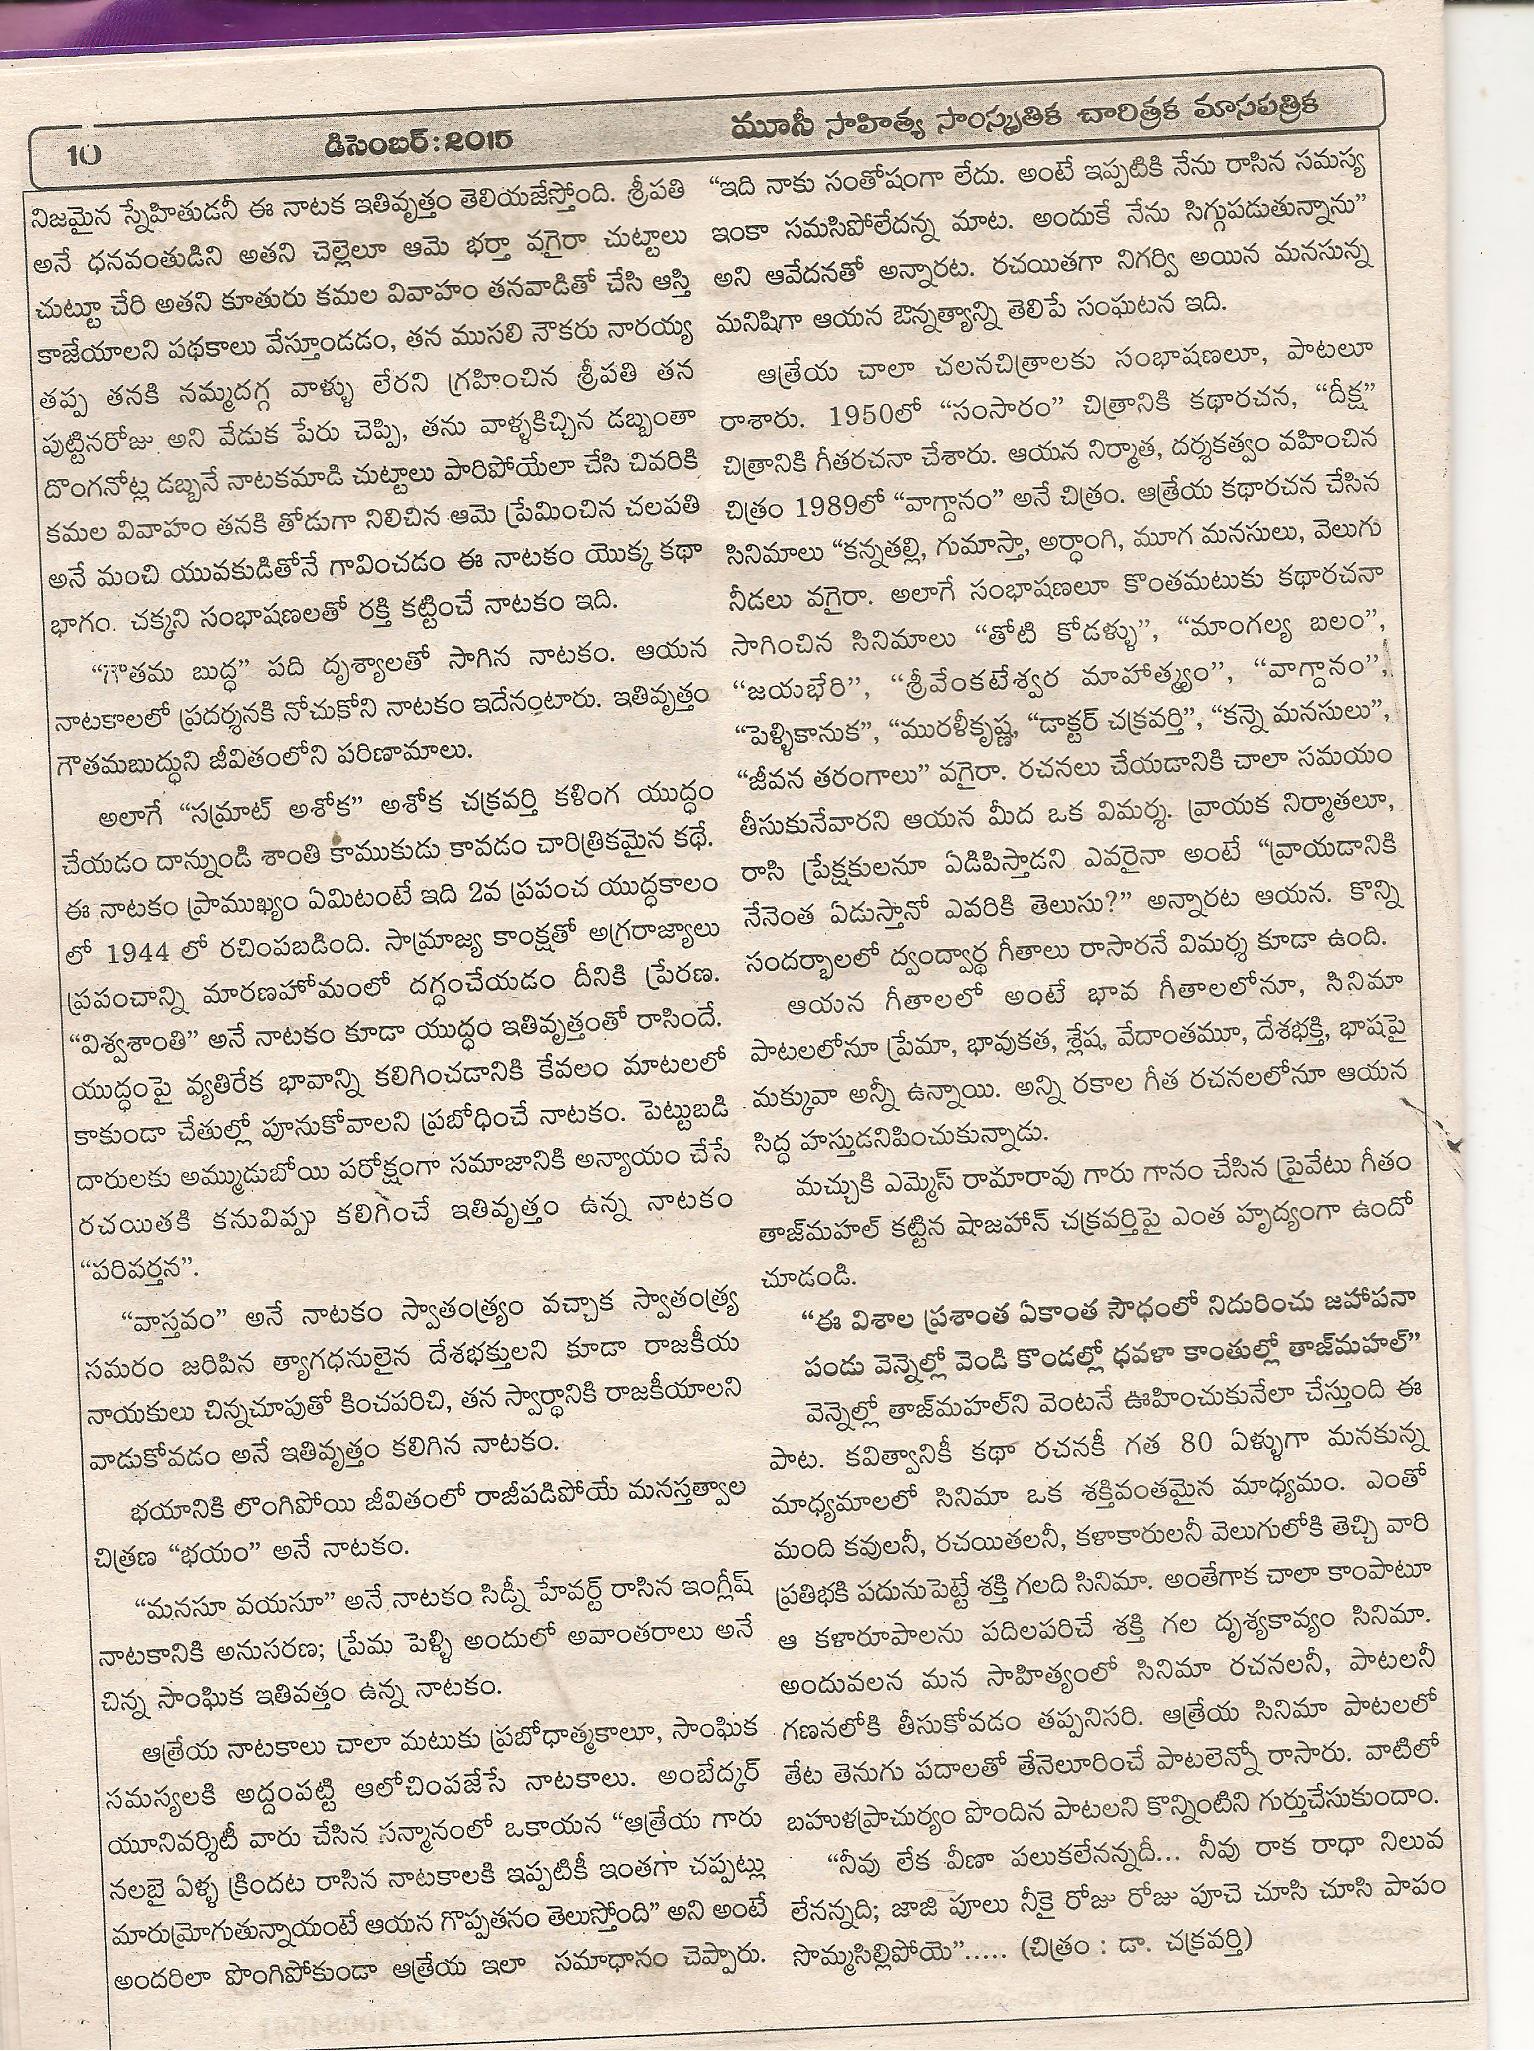 10
డిసెంబర్:2015
మూసీ సాహిత్య సాంస్కృతిక చారిత్రక మాసపత్రిక
నిజమైన స్నేహితుడనీ ఈ నాటక ఇతివృత్తం తెలియజేస్తోంది. శ్రీపతి
అనే ధనవంతుడిని అతని చెల్లెలూ ఆమె భర్తా వగైరా చుట్టాలు
చుట్టూ చేరి అతని కూతురు కమల వివాహం తనవాడితో చేసి ఆస్తి
కాజేయాలని పథకాలు వేస్తూండడం, తన ముసలి నౌకరు నారయ్య
తప్ప తనకి నమ్మదగ్గ వాళ్ళు లేరని గ్రహించిన శ్రీపతి తన
పుట్టినరోజు అని వేడుక పేరు చెప్పి, తను వాళ్ళకిచ్చిన డబ్బంతా
దొంగనోట్ల డబ్బనే నాటకమాడి చుట్టాలు పారిపోయేలా చేసి చివరికి
కమల వివాహం తనకి తోడుగా నిలిచిన ఆమె ప్రేమించిన చలపతి
అనే మంచి యువకుడితోనే గావించడం ఈ నాటకం యొక్క కథా
భాగం. చక్కని సంభాషణలతో రక్తి కట్టించే నాటకం ఇది.
“గౌతమ బుద్ధ” పది దృశ్యాలతో సాగిన నాటకం. ఆయన
నాటకాలలో ప్రదర్శనకి నోచుకోని నాటకం ఇదేనంటారు. ఇతివృత్తం
గౌతమబుద్ధుని జీవితంలోని పరిణామాలు.
అలాగే “సమ్రాట్ అశోక” అశోక చక్రవర్తి కళింగ యుద్ధం
చేయడం దాన్నుండి శాంతి కాముకుడు కావడం చారిత్రికమైన కథే.
ఈ నాటకం ప్రాముఖ్యం ఏమిటంటే ఇది 2వ ప్రపంచ యుద్ధకాలం
లో 1944 లో రచింపబడింది. సామ్రాజ్య కాంక్షతో అగ్రరాజ్యాలు
ప్రపంచాన్ని మారణహోమంలో దగ్ధంచేయడం దీనికి ప్రేరణ.
“విశ్వశాంతి” అనే నాటకం కూడా యుద్ధం ఇతివృత్తంతో రాసిందే.
యుద్ధంపై వ్యతిరేక భావాన్ని కలిగించడానికి కేవలం మాటలలో
కాకుండా చేతుల్లో పూనుకోవాలని ప్రబోధించే నాటకం. పెట్టుబడి
దారులకు అమ్ముడుబోయి పరోక్షంగా సమాజానికి అన్యాయం చేసే
రచయితకి కనువిప్పు కలిగించే ఇతివృత్తం ఉన్న నాటకం
“పరివర్తన”.
“వాస్తవం” అనే నాటకం స్వాతంత్ర్యం వచ్చాక స్వాతంత్ర్య
సమరం జరిపిన త్యాగధనులైన దేశభక్తులని కూడా రాజకీయ
నాయకులు చిన్నచూపుతో కించపరిచి, తన స్వార్థానికి రాజకీయాలని
వాడుకోవడం అనే ఇతివృత్తం కలిగిన నాటకం.
భయానికి లొంగిపోయి జీవితంలో రాజీపడిపోయే మనస్తత్వాల
చిత్రణ “భయం” అనే నాటకం.
“మనసూ వయసూ” అనే నాటకం సిడ్నీ హేవర్ట్ రాసిన ఇంగ్లీష్
నాటకానికి అనుసరణ; ప్రేమ పెళ్ళి అందులో అవాంతరాలు అనే
చిన్న సాంఘిక ఇతివత్తం ఉన్న నాటకం.
ఆత్రేయ నాటకాలు చాలా మటుకు ప్రబోధాత్మకాలూ, సాంఘిక
సమస్యలకి అద్దంపట్టి ఆలోచింపజేసే నాటకాలు. అంబేద్కర్
యూనివర్శిటీ వారు చేసిన సన్మానంలో ఒకాయన “ఆత్రేయ గారు
నలభై ఏళ్ళ క్రిందట రాసిన నాటకాలకి ఇప్పటికీ ఇంతగా చప్పట్లు
మారుమ్రోగుతున్నాయంటే ఆయన గొప్పతనం తెలుస్తోంది” అని అంటే
అందరిలా పొంగిపోకుండా ఆత్రేయ ఇలా సమాధానం చెప్పారు.
“ఇది నాకు సంతోషంగా లేదు. అంటే ఇప్పటికి నేను రాసిన సమస్య
ఇంకా సమసిపోలేదన్న మాట. అందుకే నేను సిగ్గుపడుతున్నాను”
అని ఆవేదనతో అన్నారట. రచయితగా నిగర్వి అయిన మనసున్న
మనిషిగా ఆయన ఔన్నత్యాన్ని తెలిపే సంఘటన ఇది.
ఆత్రేయ చాలా చలనచిత్రాలకు సంభాషణలూ, పాటలూ
రాశారు. 1950లో “సంసారం” చిత్రానికి కథారచన, “దీక్ష”
చిత్రానికి గీతరచనా చేశారు. ఆయన నిర్మాత, దర్శకత్వం వహించిన
చిత్రం 1989లో “వాగ్దానం” అనే చిత్రం. ఆత్రేయ కథారచన చేసిన
సినిమాలు “కన్నతల్లి, గుమాస్తా, అర్ధాంగి, మూగ మనసులు, వెలుగు
నీడలు వగైరా. అలాగే సంభాషణలూ కొంతమటుకు కథారచనా
సాగించిన సినిమాలు “తోటి కోడళ్ళు”, “మాంగల్య బలం”,
“జయభేరి”, “శ్రీవేంకటేశ్వర మాహాత్మ్యం”, “వాగ్దానం”,
“పెళ్ళికానుక”, “మురళీకృష్ణ, “డాక్టర్ చక్రవర్తి”, “కన్నె మనసులు”,
“జీవన తరంగాలు” వగైరా. రచనలు చేయడానికి చాలా సమయం
తీసుకునేవారని ఆయన మీద ఒక విమర్శ. వ్రాయక నిర్మాతలూ,
రాసి ప్రేక్షకులనూ ఏడిపిస్తాడని ఎవరైనా అంటే “వ్రాయడానికి
నేనెంత ఏడుస్తానో ఎవరికి తెలుసు?” అన్నారట ఆయన. కొన్ని
సందర్భాలలో ద్వంద్వార్థ గీతాలు రాసారనే విమర్శ కూడా ఉంది.
ఆయన గీతాలలో అంటే భావ గీతాలలోనూ, సినిమా
పాటలలోనూ ప్రేమా, భావుకత, శ్లేష, వేదాంతమూ, దేశభక్తి, భాషపై
మక్కువా అన్నీ ఉన్నాయి. అన్ని రకాల గీత రచనలలోనూ ఆయన
సిద్ధ హస్తుడనిపించుకున్నాడు.
మచ్చుకి ఎమ్మెస్ రామారావు గారు గానం చేసిన ప్రైవేటు గీతం
తాజ్‌మహల్ కట్టిన షాజహాన్ చక్రవర్తిపై ఎంత హృద్యంగా ఉందో
చూడండి.
“ఈ విశాల ప్రశాంత ఏకాంత సౌధంలో నిదురించు జహాపనా
పండు వెన్నెల్లో వెండి కొండల్లో ధవళా కాంతుల్లో తాజ్‌మహల్”
వెన్నెల్లో తాజ్‌మహల్‌ని వెంటనే ఊహించుకునేలా చేస్తుంది ఈ
పాట. కవిత్వానికీ కథా రచనకీ గత 80 ఏళ్ళుగా మనకున్న
మాధ్యమాలలో సినిమా ఒక శక్తివంతమైన మాధ్యమం. ఎంతో
మంది కవులనీ, రచయితలనీ, కళాకారులనీ వెలుగులోకి తెచ్చి వారి
ప్రతిభకి పదునుపెట్టే శక్తి గలది సినిమా. అంతేగాక చాలా కాంపాటూ
ఆ కళారూపాలను పదిలపరిచే శక్తి గల దృశ్యకావ్యం సినిమా.
అందువలన మన సాహిత్యంలో సినిమా రచనలనీ, పాటలనీ
గణనలోకి తీసుకోవడం తప్పనిసరి. ఆత్రేయ సినిమా పాటలలో
తేట తెనుగు పదాలతో తేనెలూరించే పాటలెన్నో రాసారు. వాటిలో
బహుళప్రాచుర్యం పొందిన పాటలని కొన్నింటిని గుర్తుచేసుకుందాం.
“నీవు లేక వీణా పలుకలేనన్నదీ... నీవు రాక రాధా నిలువ
లేనన్నది; జాజి పూలు నీకై రోజు రోజు పూచె చూసి చూసి పాపం
సొమ్మసిల్లిపోయె”..... (చిత్రం : డా. చక్రవర్తి)